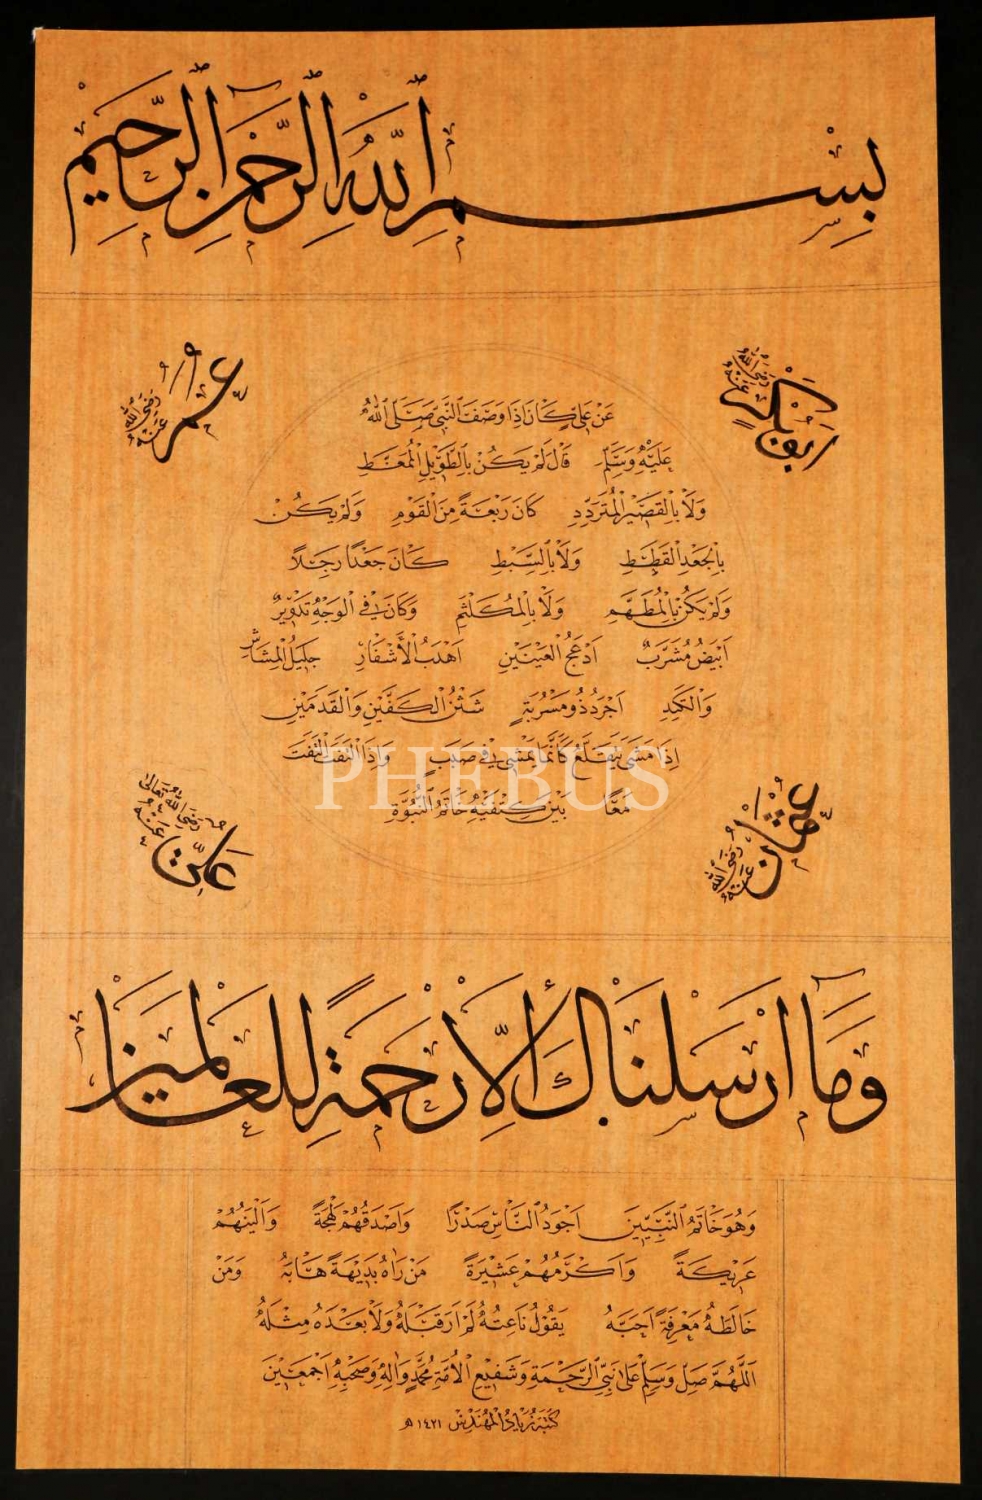 بِسْمِ ٱللَّهِ ٱلرَّحْمَٰنِ ٱلرَّحِيمِ
ابوبكر رضي الله عنه
عمر رضي الله عنه
عن علي كان اذا وصف النبي صلى الله
عليه وسلم قال لم يكن بالطويل الممغط
ولا بالقصير المتردد كان ربعة من القوم ولم يكن
بالجعد القطط ولا بالسبط كان جعدا رجلا
ولم يكن بالمطهم ولا بالمكلثم وكان في الوجه تدوير
ابيض مشرب ادعج العينين اهدب الأشفار جليل المشاش
والكتد اجرد ذو مسربة شثن الكفين والقدمين
اذا مشى يتقلع كأنما يمشي في صبب واذا التفت التفت
معا بين كتفيه خاتم النبوة
PHEBUS
عثمان رضي الله عنه
علي رضي الله تعالى عنه
وَمَا اَرْسَلْنَاكَ اِلَّا رَحْمَةً لِلْعَالَمِينَ
وهو خاتم النبيين اجود الناس صدرا واصدقهم لهجة والينهم
عريكة واكرمهم عشيرة من راه بديهة هابه ومن
خالطه معرفة احبه يقول ناعته لم ار قبله ولا بعده مثله
اللهم صل وسلم على نبي الرحمة وشفيع الامة محمد واله وصحبه اجمعين
كتبه زياد المهندس ١٤٢١ هـ